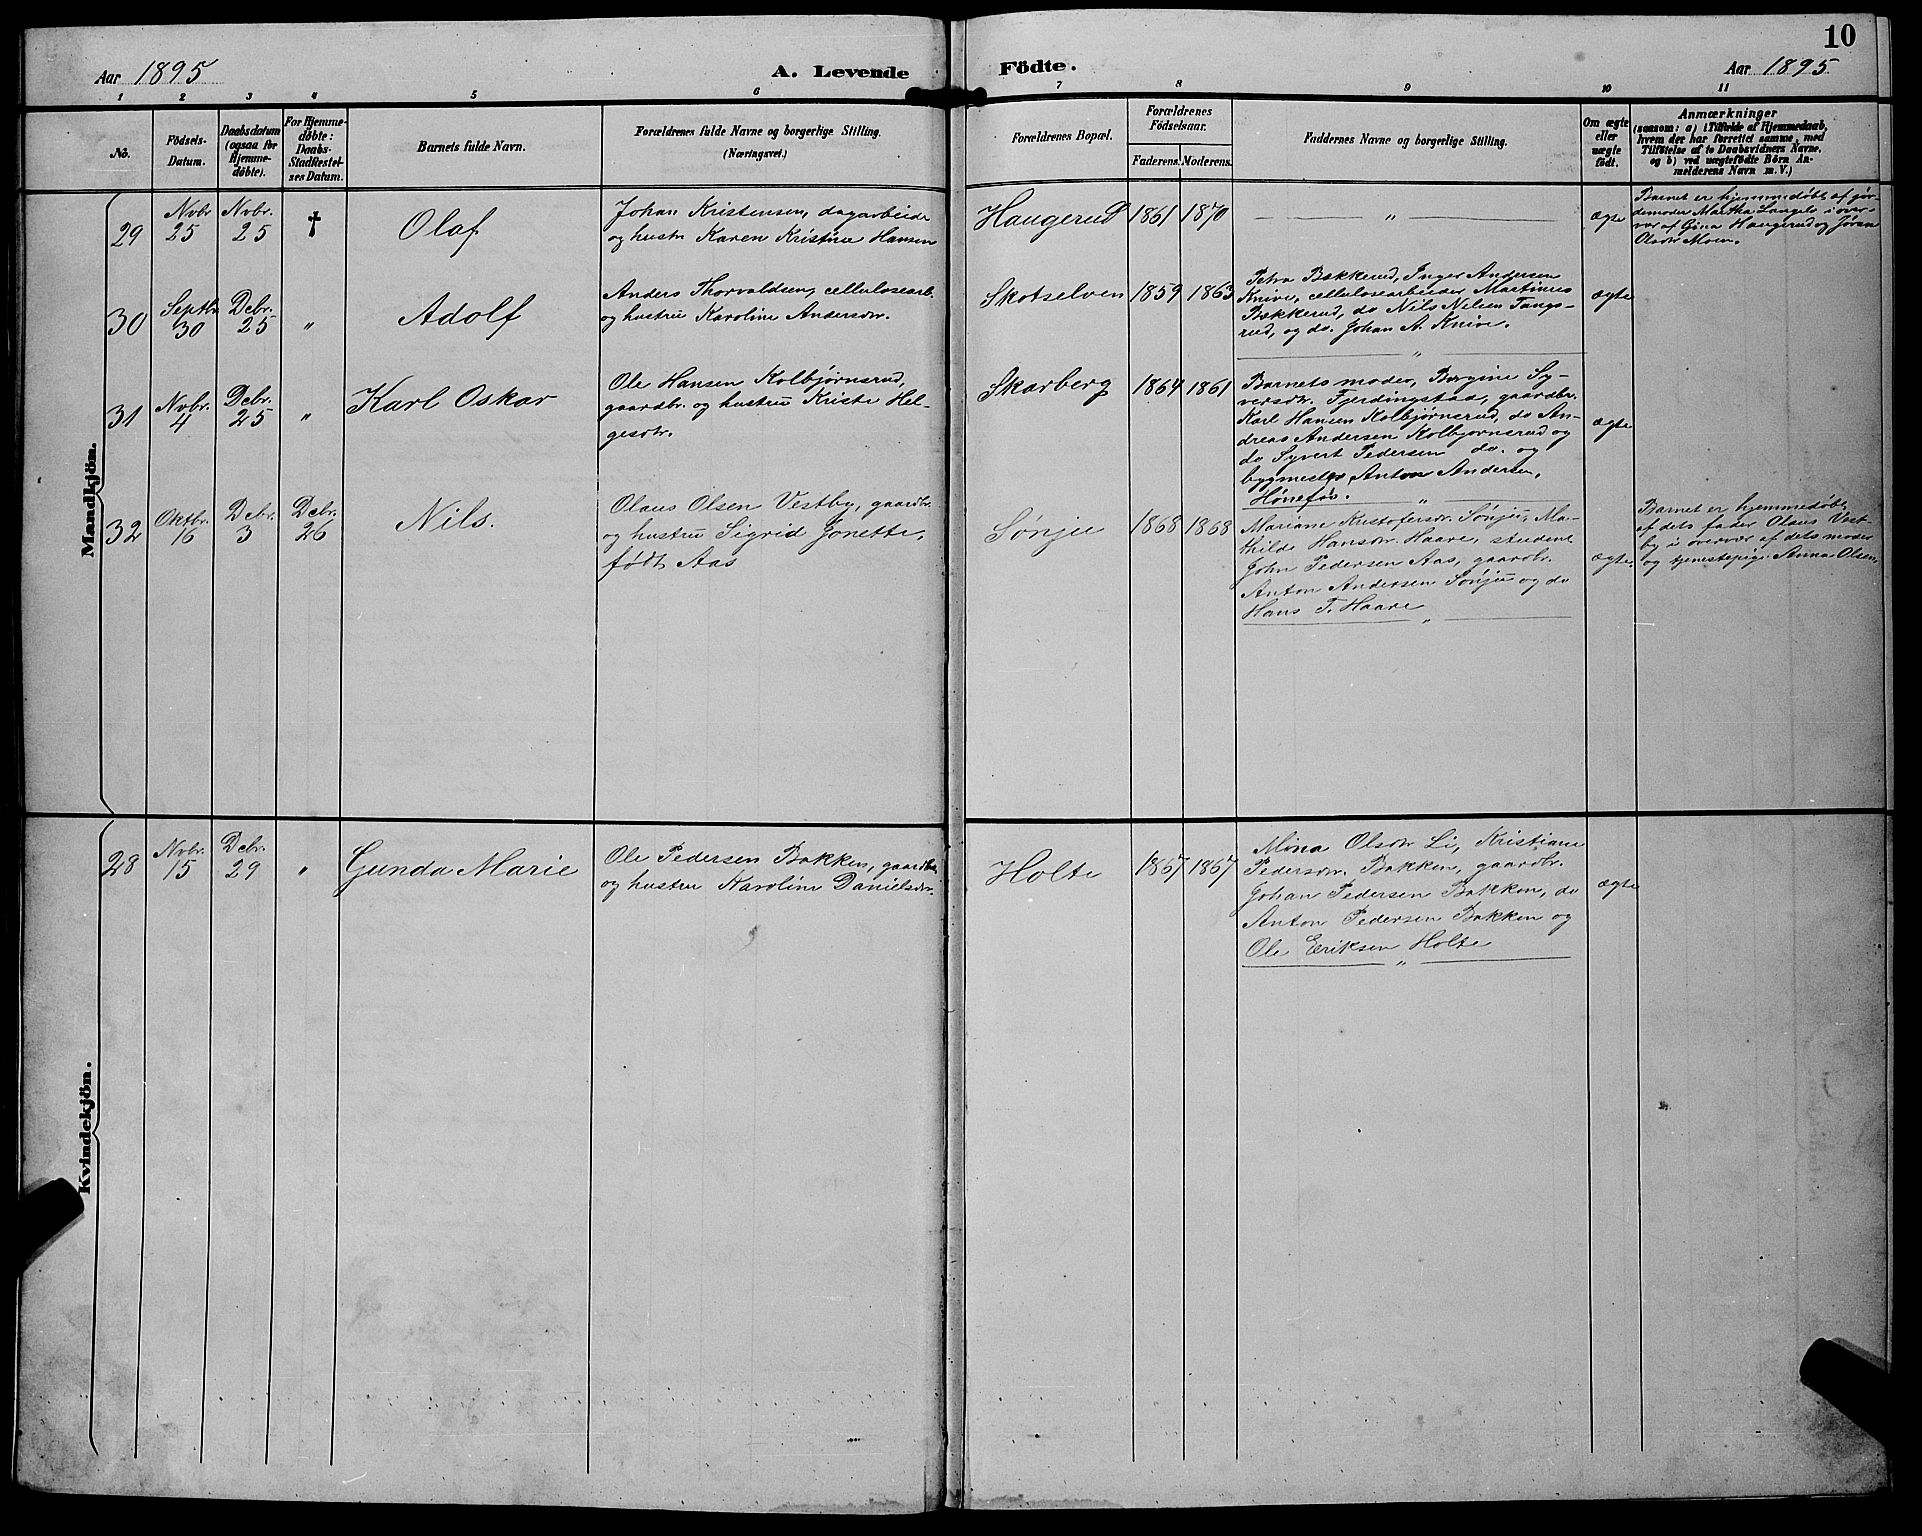 10
Aar 1895
A. Levende Födte.
Aar 1895
1 2 3 4 5 6 7 8 9 10 11
No.
Födsels-
Datum.
Daabsdatum
(ogsaa for
Hjemme-
döbte).
For Hjemme-
döbte:
Daabs-
Stadfæstel-
ses Datum.
Barnets fulde Navn.
Forældrenes fulde Navne og borgerlige Stilling.
(Næringsvei.)
Forældrenes Bopæl.
Forældrenes
Födselsaar.
Faderens. Moderens.
Faddernes Navne og borgerlige Stilling.
Om ægte
eller
uægte
födt.
Anmærkninger
(saasom: a) i Tilfælde af Hjemmedaab,
hvem der har forrettet samme, med
Tilföielse af to Daabsvidners Navne,
og b) ved uægtefödte Börn An-
melderens Navn m. V.)
Mandkjön.
29
Nvbr
25
Nvbr.
25
†
Olaf
Johan Kristensen, dagarbeide
og hustr Karen Kristine Hansen
Haugerud
1861
1870
"
ægte
Barnet er hjemmedøbt af jor-
demoder Martha Langelo i over-
vær af Gina Haugerud og Jøran
Olsdtr Moen.
30
Septbr
30
Debr.
25
"
Adolf
Anders Thorvaldsen, cellulosearb.
og hustru Karoline Andersdtr.
Skotselven
1859
1863
Petra Bækkerud, Inger Andersen
Knive, cellulosearbeider Martinus
Bækkerud, do Nils Nilsen Tangs-
rud, og do. Johan A. Knive.
"
ægte
31
Nvbr.
4
Debr.
25
"
Karl Oskar
Ole Hansen Kolbjørnsrud,
gaardbr. og hustru Kristi Hel-
gesdtr.
Skarberg
1864
1861
Barnets moder, Bergine Sy-
versdtr. Fjerdingstad, gaardbr.
Karl Hansen Kolbjørnsrud, do An-
dreas Andersen Kolbjørnsrud og
do Syvert Pedersen do. og
bygmester Anton Andersen,
Hønefos.
"
ægte
32
Oktbr.
16
Debr.
3
Debr.
26
Nils.
Olaus Olsen Vestby, gaardbr.
og hustru Sigrid Jonette,
født Aas
Sønju
1868
1868
Mariane Kristofersdr. Sønju, Ma-
thilde Hansdtr. Haare, student
John Pedersen Aas, gaardbr.
Anton Andersen Sønju og do
Hans T. Haare
"
ægte.
Barnet er hjemmedøbt
af dets fader Olaus Vest-
by i overvær af dets moder
og tjenestepige Anna Olsen.
Kvindekjön.
28
Nvbr.
15
Debr.
29
"
Gunda Marie
Ole Pedersen Bakken, gaardbr.
og hustru Karoline Danielsdtr.
Holte
1867
1867
Mina Olsdtr Li, Kristiane
Pedersdtr. Bakken, gaardbr.
Johan Pedersen Bakken, do
Anton Pedersen Bakken og
Ole Eriksen Holte
"
ægte